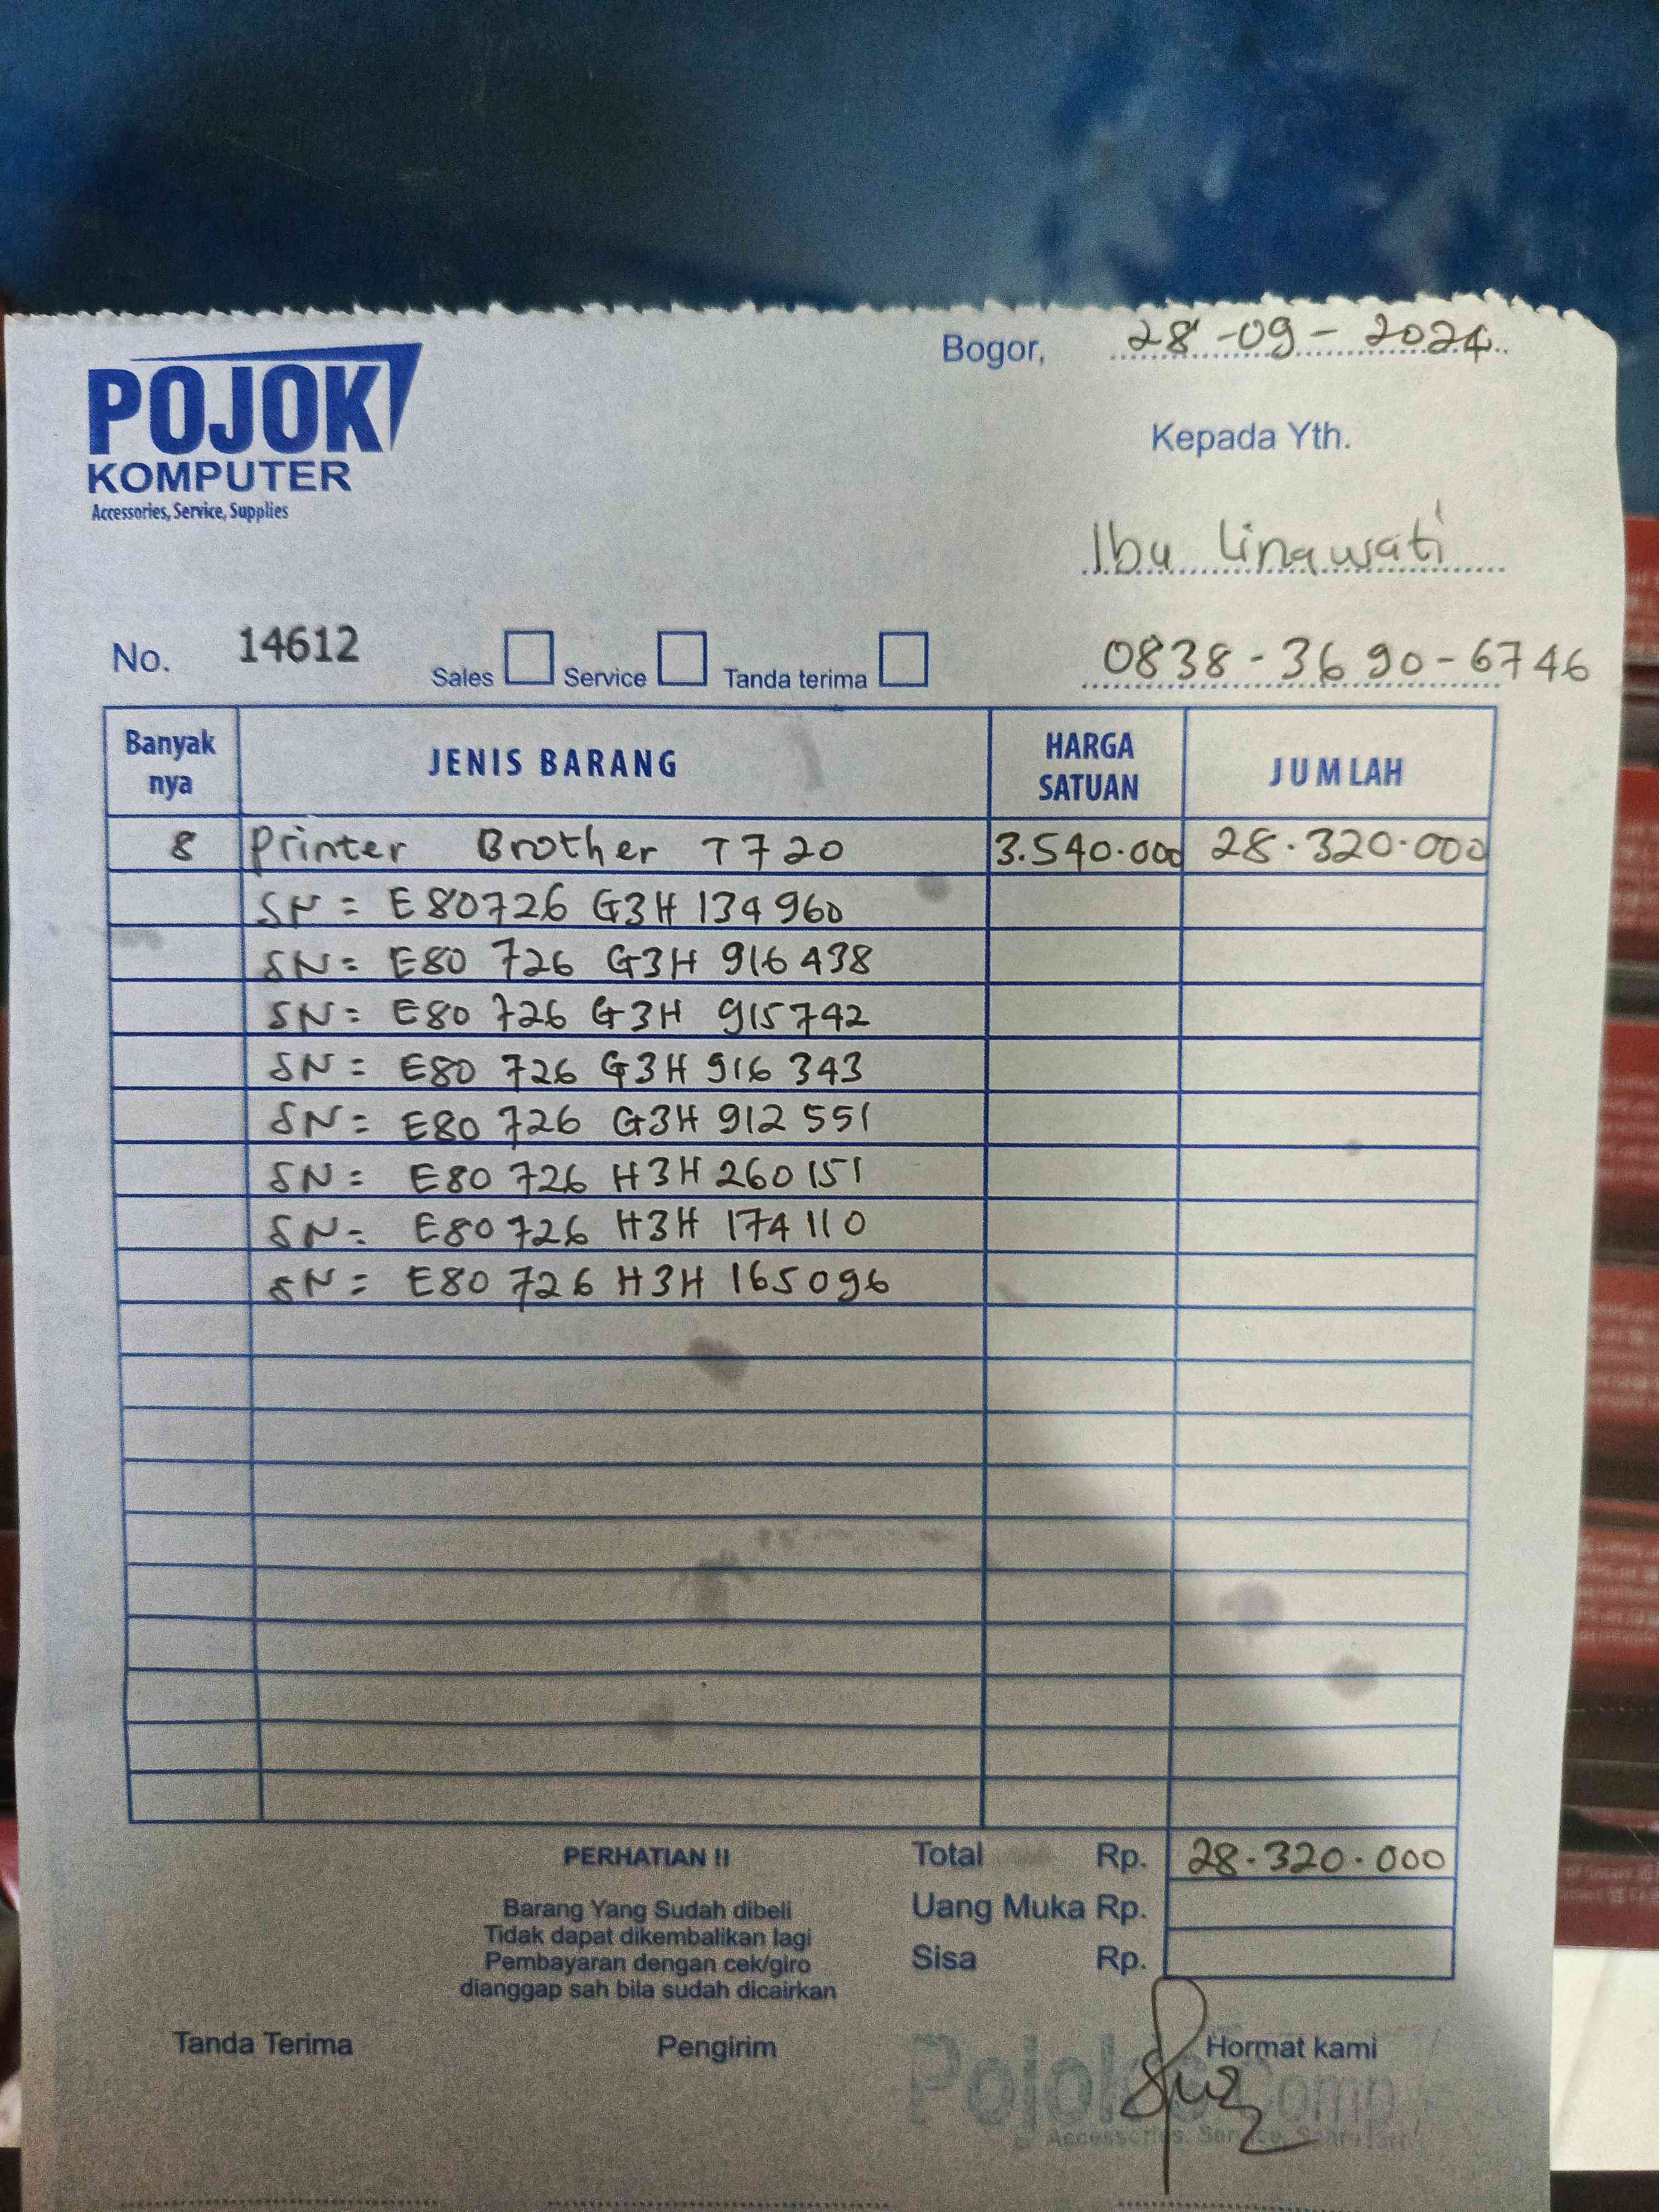 Bogor, 28-09-2024
POJOK
KOMPUTER
Accessories, Service, Supplies
Kepada Yth.
Ibu Linawati
0838-3690-6746
No. 14612 Sales Service Tanda terima
Banyak nya JENIS BARANG HARGA SATUAN JUMLAH
8 Printer Brother T720 3.540.000 28.320.000
SN = E80726 G3H 134960
SN = E80 726 G3H 916438
SN = E80 726 G3H 915742
SN = E80 726 G3H 916343
SN = E80 726 G3H 912551
SN = E80 726 H3H 260151
SN = E80726 H3H 174110
SN = E80 726 H3H 165096
PERHATIAN !!
Barang Yang Sudah dibeli
Tidak dapat dikembalikan lagi
Pembayaran dengan cek/giro
dianggap sah bila sudah dicairkan
Total Rp. 28.320.000
Uang Muka Rp.
Sisa Rp.
Tanda Terima Pengirim Hormat kami
Pojok Comp
Accessories, Service,